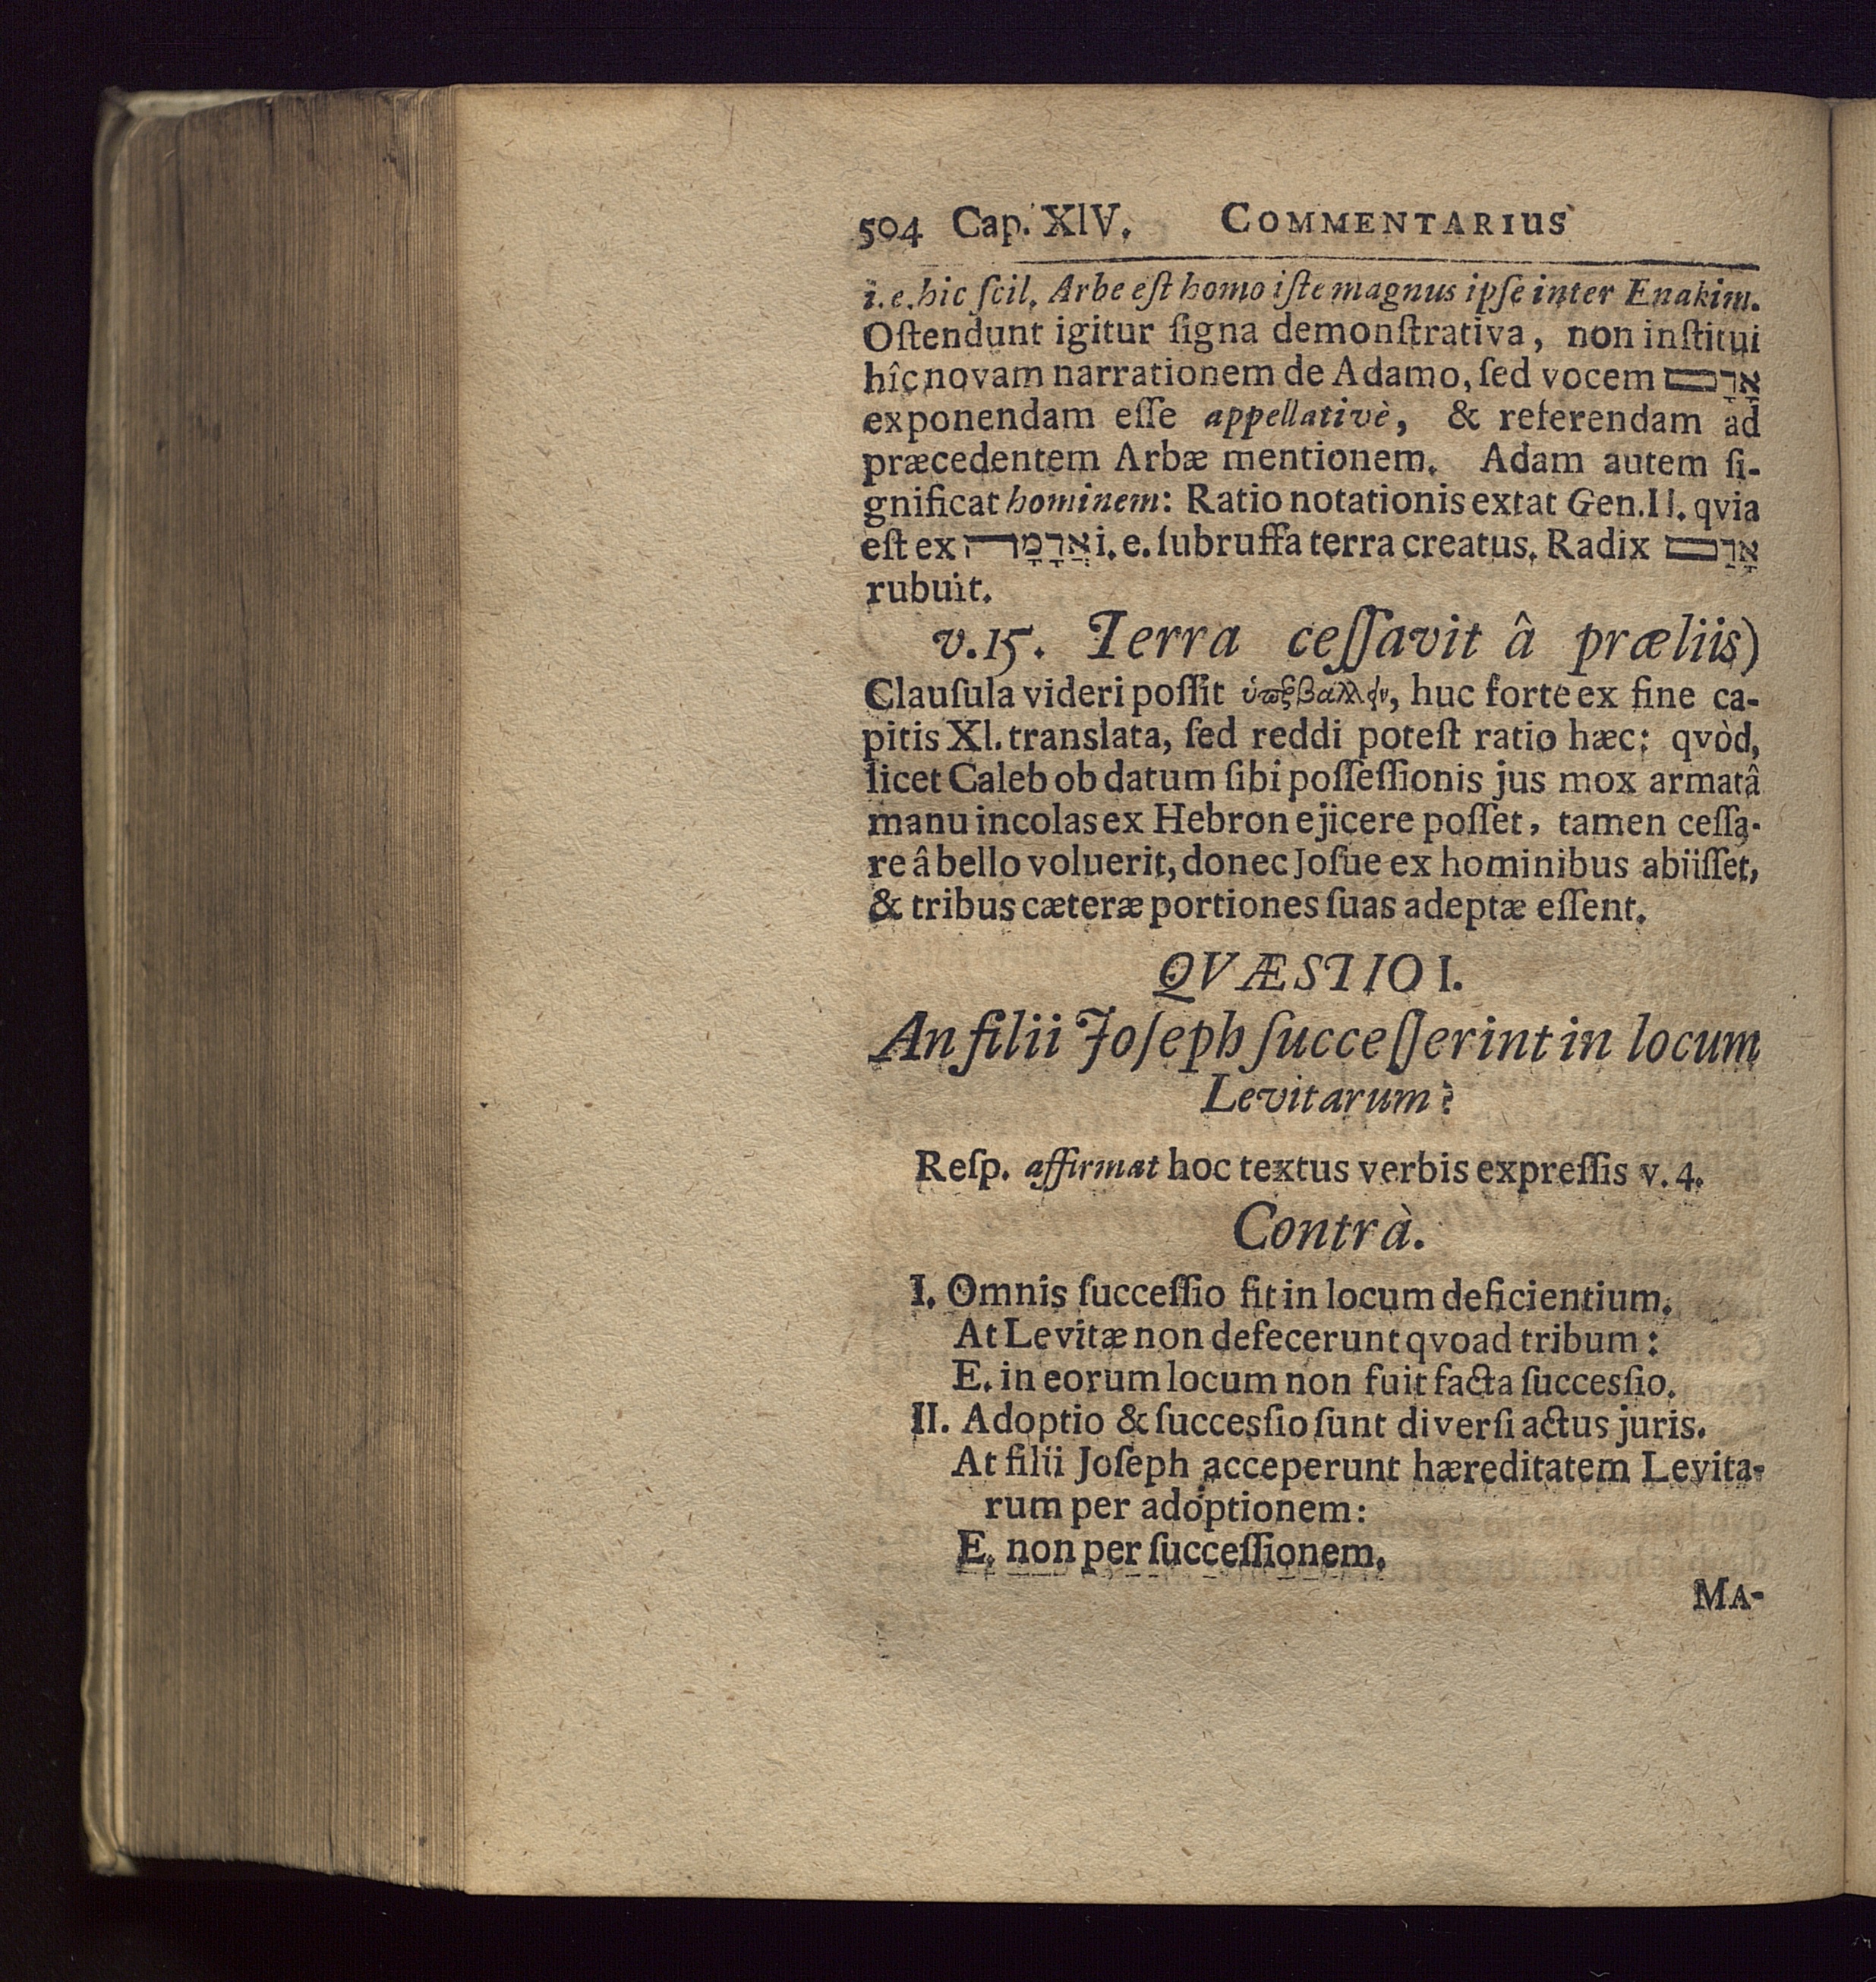 504 Cap. XIV. COMMENTARIUS
i.e. hic ſcil. Arbe eſt homo iſte magnus ipſe inter Enakim.
Oſtendunt igitur ſigna demonſtrativa, non inſtitui
hîc novam narrationem de Adamo, ſed vocem אָדָם
exponendam eſſe appellativè, & referendam ad
præcedentem Arbæ mentionem. Adam autem ſi-
gnificat hominem: Ratio notationis extat Gen. II. qvia
eſt ex אֲדָמָה i. e. ſubruffa terra creatus. Radix אָדַם
rubuit.
v. 15. Terra ceſſavit â præliis)
Clauſula videri poſſit , huc forte ex fine ca-
pitis XI. translata, ſed reddi poteſt ratio hæc: qvòd,
licet Caleb ob datum ſibi poſſeſſionis jus mox armatâ
manu incolas ex Hebron ejicere poſſet, tamen ceſſa-
re â bello voluerit, donec Joſue ex hominibus abiiſſet,
& tribus cæteræ portiones ſuas adeptæ eſſent.
QVÆSTIO I.
An filii Joſeph ſucceſſerint in locum
Levitarum?
Reſp. affirmat hoc textus verbis expreſſis v. 4.
Contrà.
I. Omnis ſucceſſio fit in locum deficientium.
At Levitæ non defecerunt qvoad tribum:
E. in eorum locum non fuit facta ſuccesſio.
II. Adoptio & ſuccesſio ſunt diverſi actus juris.
At filii Joſeph acceperunt hæreditatem Levita-
rum per adoptionem:
E. non per ſucceſſionem.
MA-